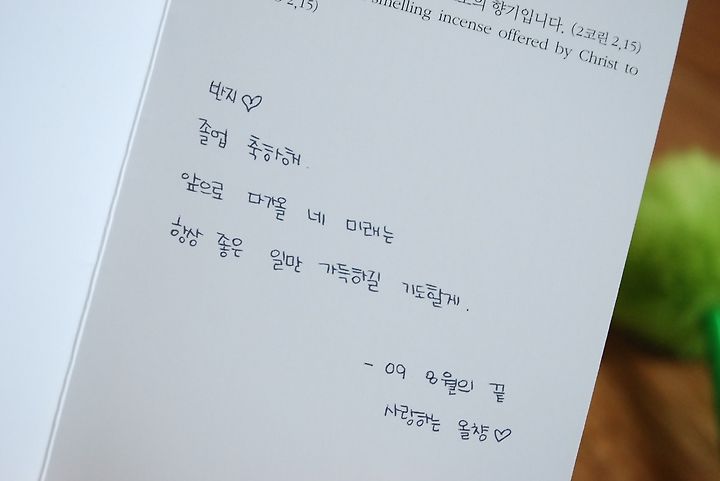 의 향기입니다. (2코린 2,15)
smelling incense offered by Christ to
2,15)
반지♡
졸업 축하해.
앞으로 다가올 네 미래는
항상 좋은 일만 가득하길 기도할게.
- 09 8월의 끝
사랑하는 올챙♡